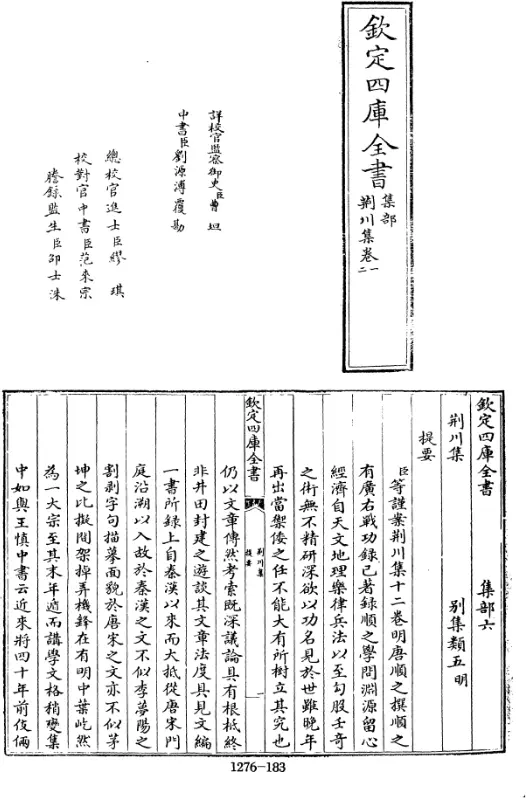 欽定四庫全書
集部
荆川集卷一
二
詳校官監察御史臣曹坦
中書臣劉源溥覆勘
總校官進士臣繆琪
校對官中書臣范來宗
謄錄監生臣邵士洙
欽定四庫全書
集部六
荆川集
别集類五明
提要
臣等謹案荆川集十二巻明唐順之撰順之
有廣右戰功録已著録順之學問淵源留心
經濟自天文地理樂律兵法以至勾股壬奇
之術無不精研深欲以功名見於世雖晚年
再出當禦倭之任不能大有所樹立其究也
欽定四庫全書
荆川集
提要
一
仍以文章傳然考索既深議論具有根柢終
非井田封建之遊談其文章法度具見文編
一書所録上自秦漢以來而大抵從唐宋門
庭沿溯以入故於秦漢之文不似李夢陽之
割剥字句描摹面貌於唐宋之文亦不似茅
坤之比擬間架掉弄機鋒在有明中葉屹然
為一大宗至其末年遁而講學文格稍變集
中如與王慎中書云近來將四十年前伎倆
1276-183